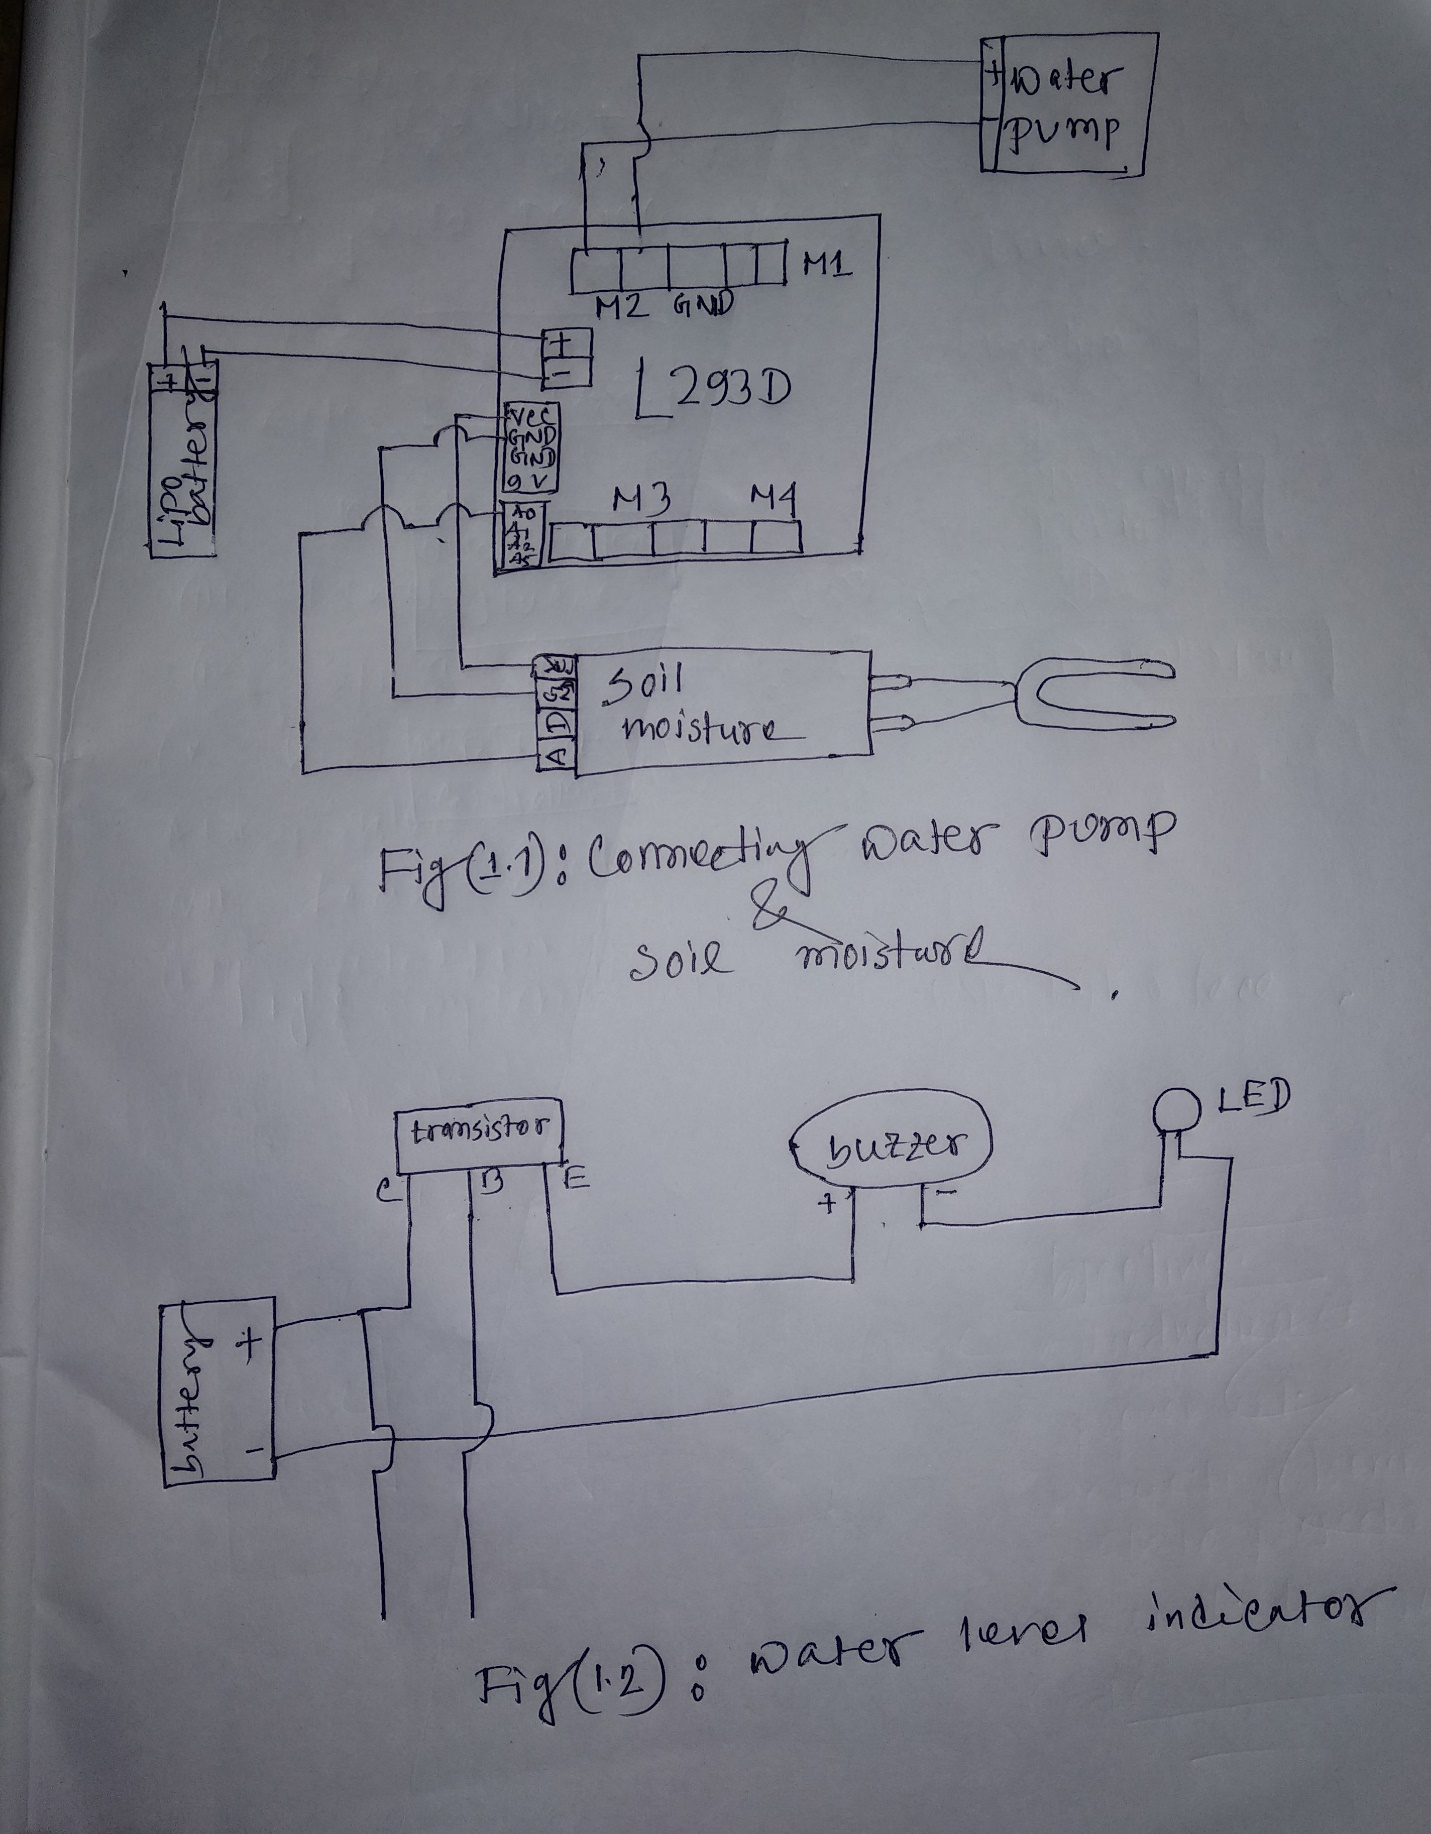 + water
- pump
M1
M2 GND
+
-
L293D
+ -
Lipo
battery
VCC
GND
GND
9V
M3 M4
A0
A1
A2
A5
G
D
A
soil
moisture
Fig(1.1): Connecting water pump
&
soil moisture
transistor
C B E
buzzer
+ -
LED
battery
+
-
Fig(1.2): water level indicator